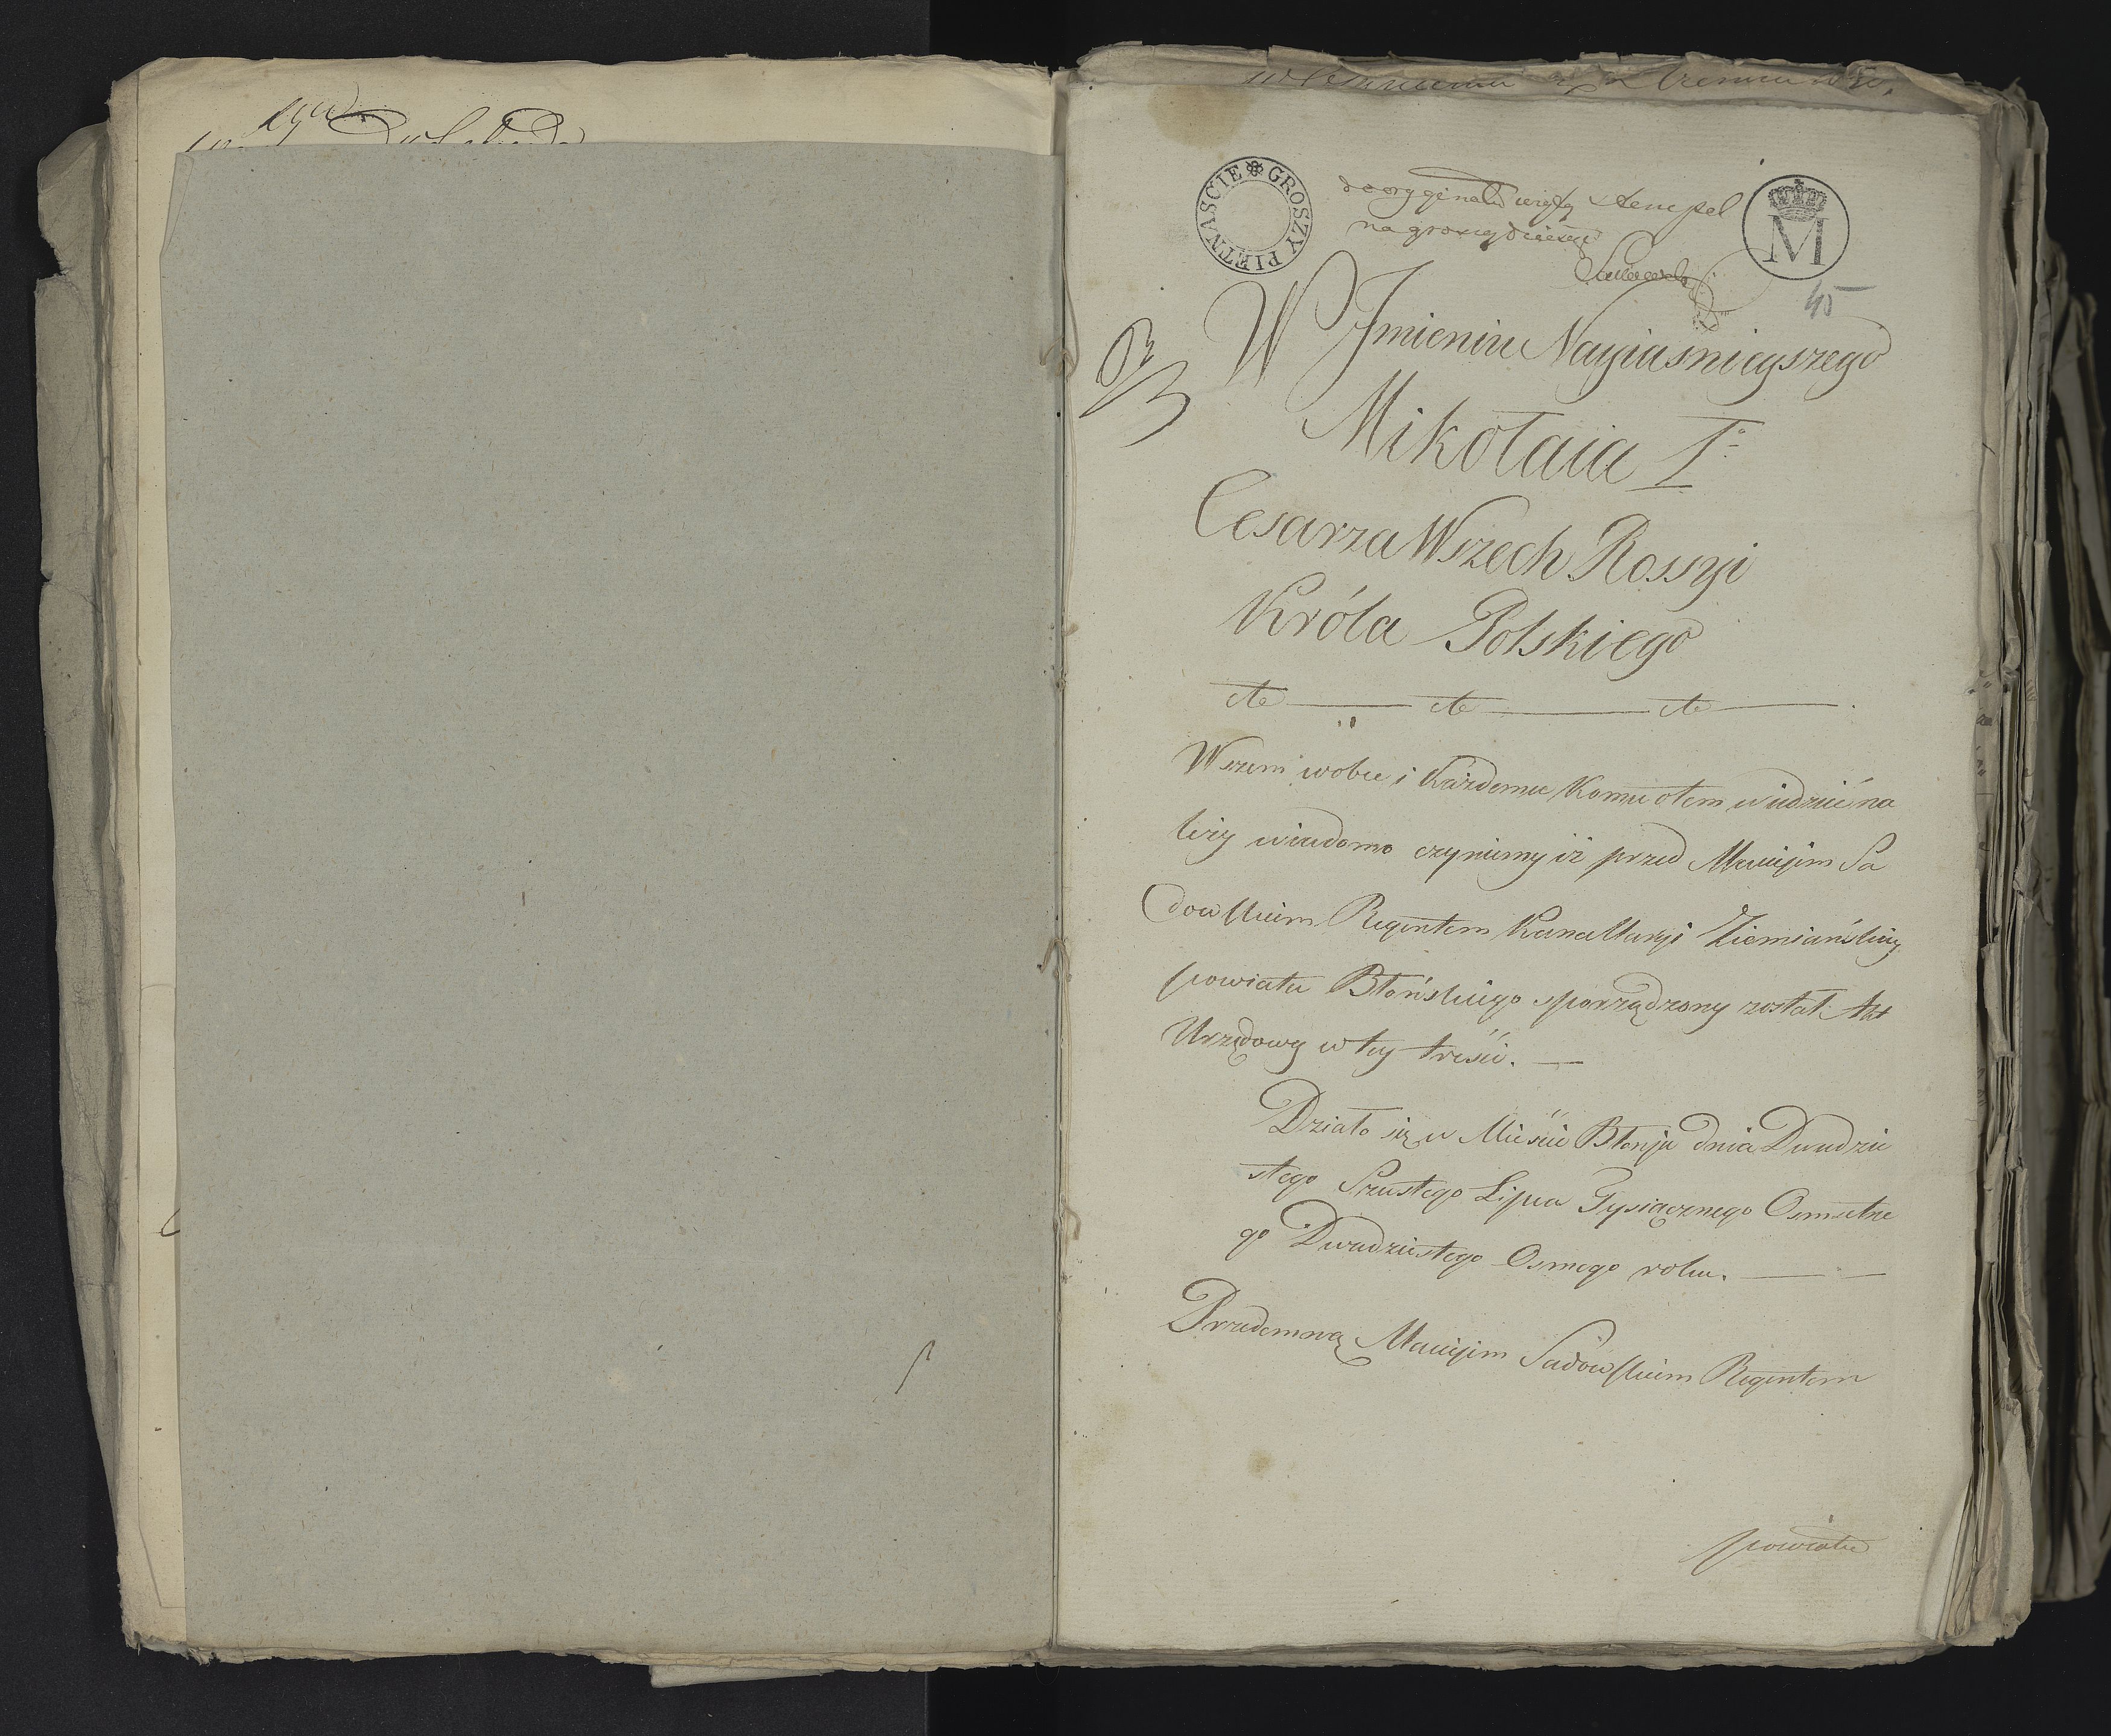 GROSZY PIETNASCIE
do oryginału wzięty stempel
na groszy
M
45
W Jmieniu Nayiasnieyszego
Mikołaia I°
Cesarza Wszech Rossyi
Króla Polskiego
etc etc etc
Wszem wobec i każdemu komu otem wiedzieć na
leży wiadomo czyniemy iż przed Maciejem Sa
dowskiem Regentem Kancellaryi Ziemiańskiey
powiatu Błońskiego sporządzony został Akt
Urzędowy w tey treści.
Działo się w Mieście Błonju dnia Dwudzie
stego Szustego Lipca Tysiącznego Osmsetne
go Dwudziestego Osmego roku.
Przedemną Maciejem Sadowskiem Regentem
powiatu